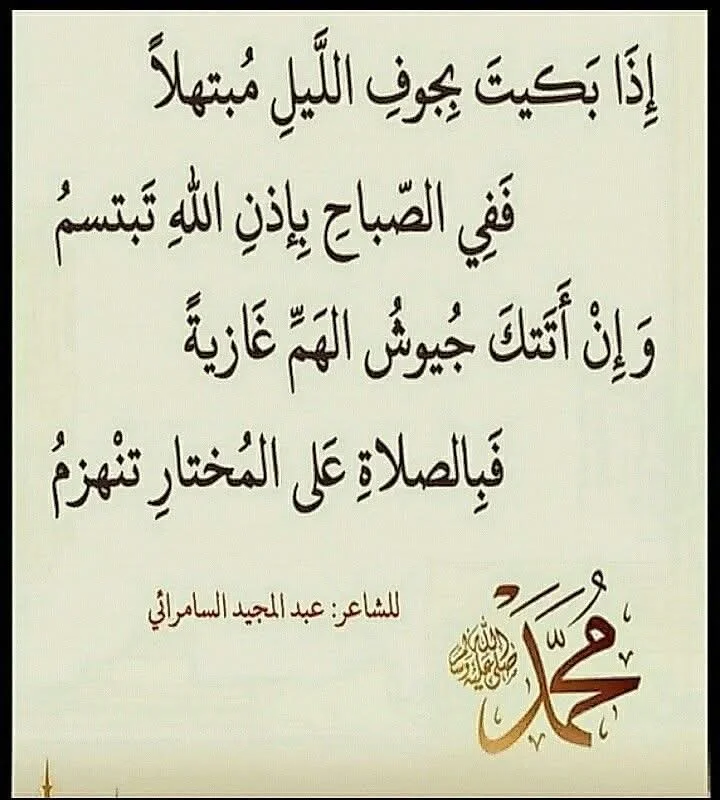 إِذَا بَكيتَ بِجوفِ اللَّيلِ مُبتهلاً
فَفِي الصّباحِ بِإذنِ اللهِ تَبتسمُ
وَ إِنْ أَتَتكَ جُيوشُ الهَمِّ غَازيةً
فَبِالصلاةِ عَلى المُختارِ تنْهزمُ
للشاعر: عبد المجيد السامرائي
مُحَمَّد
صلى الله عليه وسلم